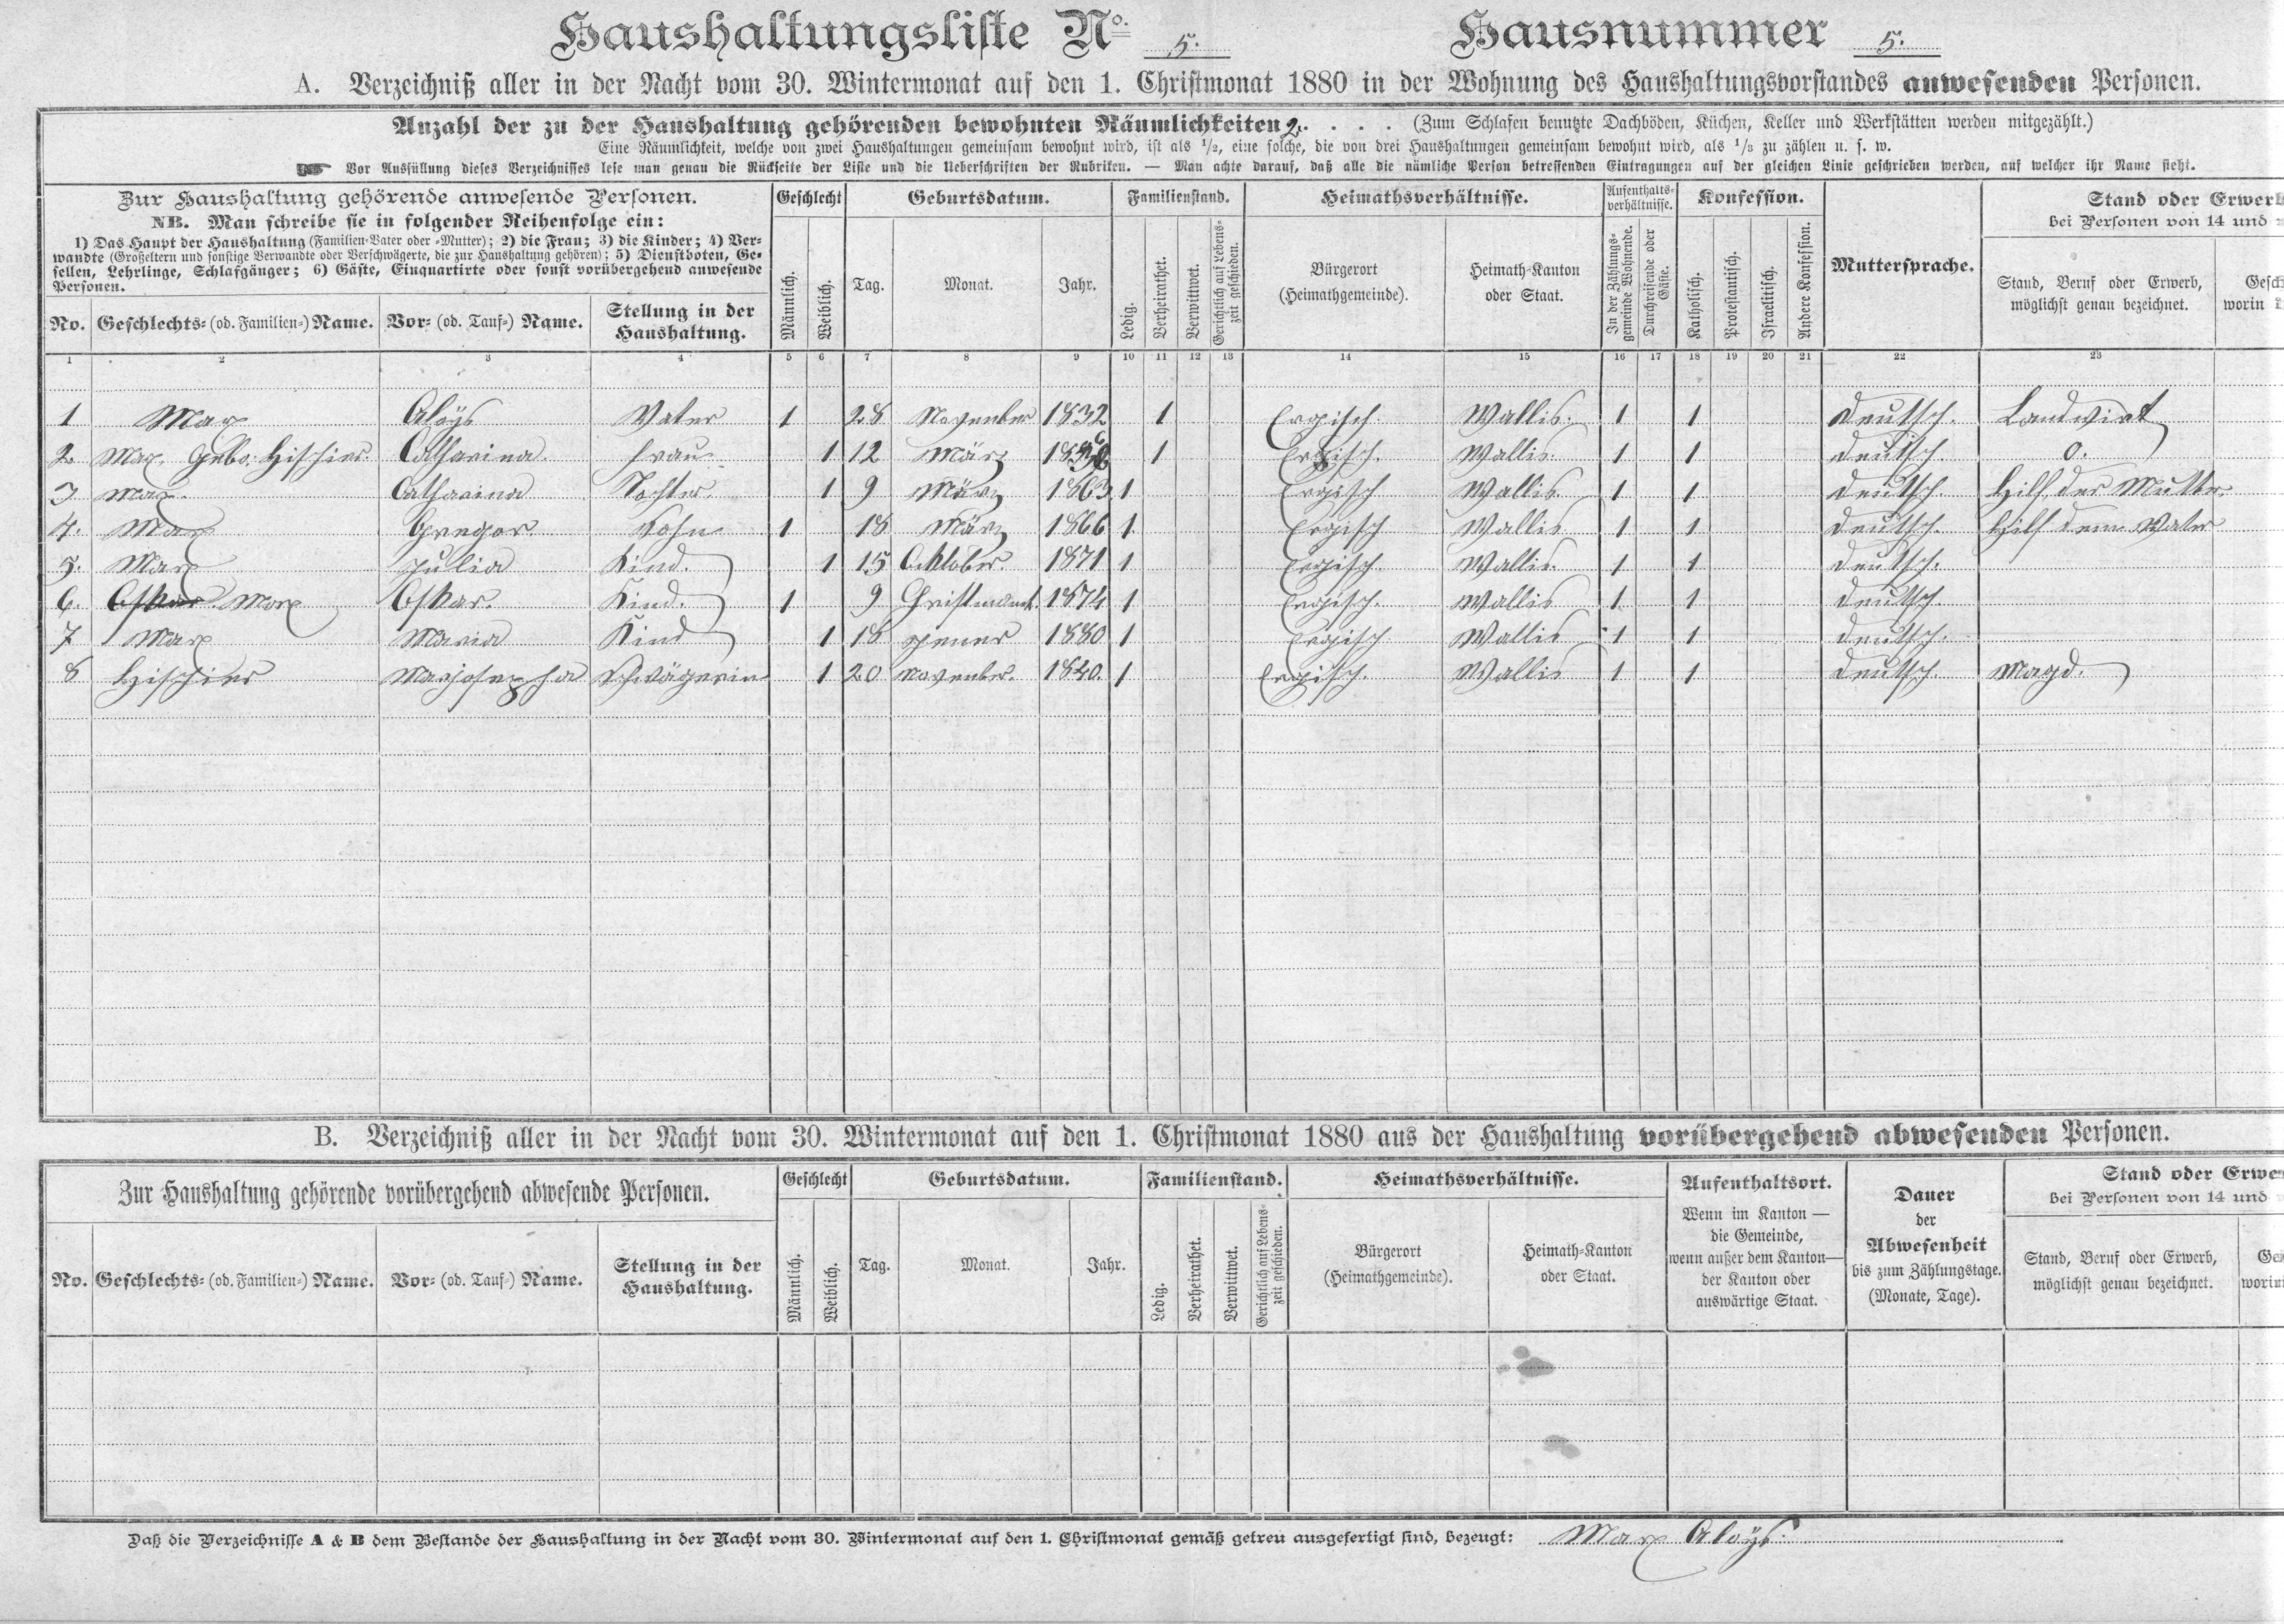 Haushaltungsliste No. 5. Hausnummer 5.
A. Verzeichniß aller in der Nacht vom 30. Wintermonat auf den 1. Christmonat 1880 in der Wohnung des Haushaltungsvorstandes anwesenden Personen.
Anzahl der zu der Haushaltung gehörenden bewohnten Räumlichkeiten 2. . . . . (Zum Schlafen benutzte Dachböden, Küchen, Keller und Werkstätten werden mitgezählt.)
Eine Räumlichkeit, welche von zwei Haushaltungen gemeinsam bewohnt wird, ist als 1/2, eine solche, die von drei Haushaltungen gemeinsam bewohnt wird, als 1/3 zu zählen u. s. w.
Vor Ausfüllung dieses Verzeichnisses lese man genau die Rückseite der Liste und die Ueberschriften der Rubriken. — Man achte darauf, daß alle die nämliche Person betreffenden Eintragungen auf der gleichen Linie geschrieben werden, auf welcher ihr Name steht.
Zur Haushaltung gehörende anwesende Personen.
NB. Man schreibe sie in folgender Reihenfolge ein:
1) Das Haupt der Haushaltung (Familien-Vater oder -Mutter); 2) die Frau; 3) die Kinder; 4) Ver-
wandte (Großeltern und sonstige Verwandte oder Verschwägerte, die zur Haushaltung gehören); 5) Dienstboten, Ge-
sellen, Lehrlinge, Schlafgänger; 6) Gäste, Einquartirte oder sonst vorübergehend anwesende
Personen.
No. Geschlechts- (od. Familien-) Name. Vor- (od. Tauf-) Name. Stellung in der Haushaltung.
Geschlecht
Männlich. Weiblich.
Geburtsdatum.
Tag. Monat. Jahr.
Familienstand.
Ledig. Verheirathet. Verwittwet. Gerichtlich auf Lebens-zeit geschieden.
Heimathsverhältnisse.
Bürgerort (Heimathgemeinde). Heimath-Kanton oder Staat.
Aufenthalts-verhältnisse.
In der Zählungs-gemeinde Wohnende. Durchreisende oder Gäste.
Konfession.
Katholisch. Protestantisch. Israelitisch. Andere Konfession.
Muttersprache.
Stand oder Erwerb
bei Personen von 14 und
Stand, Beruf oder Erwerb, möglichst genau bezeichnet.
worin
1 2 3 4 5 6 7 8 9 10 11 12 13 14 15 16 17 18 19 20 21 22 23
1 Marx Aloÿs Vater 1 28 November 1832 1 Ergisch. Wallis. 1 1 deutsch. Landwirt
2 Marx. Gebo. Hischier. Catharina. frau. 1 12 März 1 Ergisch. Wallis. 1 1 deutsch. 0.
3 Marx. Catharina Tochter. 1 9 März 1863 1 Ergisch Wallis. 1 1 deutsch. Hilf. der Mutter.
4. Marx Gregor. Sohn 1 18 März 1866 1. Ergisch Wallis 1 1 deutsch. Hilf dem Vater
5. Marx Julia Kind. 1 15 Ocktober. 1871 1 Ergisch. Wallis. 1 1 deutsch.
6. Oskar Marx Oskar. Kind. 1 9 Christmonat. 1874 1 Ergisch. Wallis 1 1 deutsch.
7 Marx Maria Kind 1 18 Jener 1880 1 Ergisch Wallis 1 1 deutsch.
8 Hischier Marjosepha Schwägerin 1 20 November. 1840. 1 Ergisch. Wallis 1 1 deutsch. Magd.
B. Verzeichniß aller in der Nacht vom 30. Wintermonat auf den 1. Christmonat 1880 aus der Haushaltung vorübergehend abwesenden Personen.
Zur Haushaltung gehörende vorübergehend abwesende Personen.
No. Geschlechts- (od. Familien-) Name. Vor- (od. Tauf-) Name. Stellung in der Haushaltung.
Geschlecht
Männlich. Weiblich.
Geburtsdatum.
Tag. Monat. Jahr.
Familienstand.
Ledig. Verheirathet. Verwittwet. Gerichtlich auf Lebens-zeit geschieden.
Heimathsverhältnisse.
Bürgerort (Heimathgemeinde). Heimath-Kanton oder Staat.
Aufenthaltsort.
Wenn im Kanton —
die Gemeinde,
wenn außer dem Kanton—
der Kanton oder
auswärtige Staat.
Dauer
der
Abwesenheit
bis zum Zählungstage.
(Monate, Tage).
Stand oder Erwe
bei Personen von 14 und
Stand, Beruf oder Erwerb, möglichst genau bezeichnet.
Daß die Verzeichnisse A & B dem Bestande der Haushaltung in der Nacht vom 30. Wintermonat auf den 1. Christmonat gemäß getreu ausgefertigt sind, bezeugt: Marx Aloÿs.